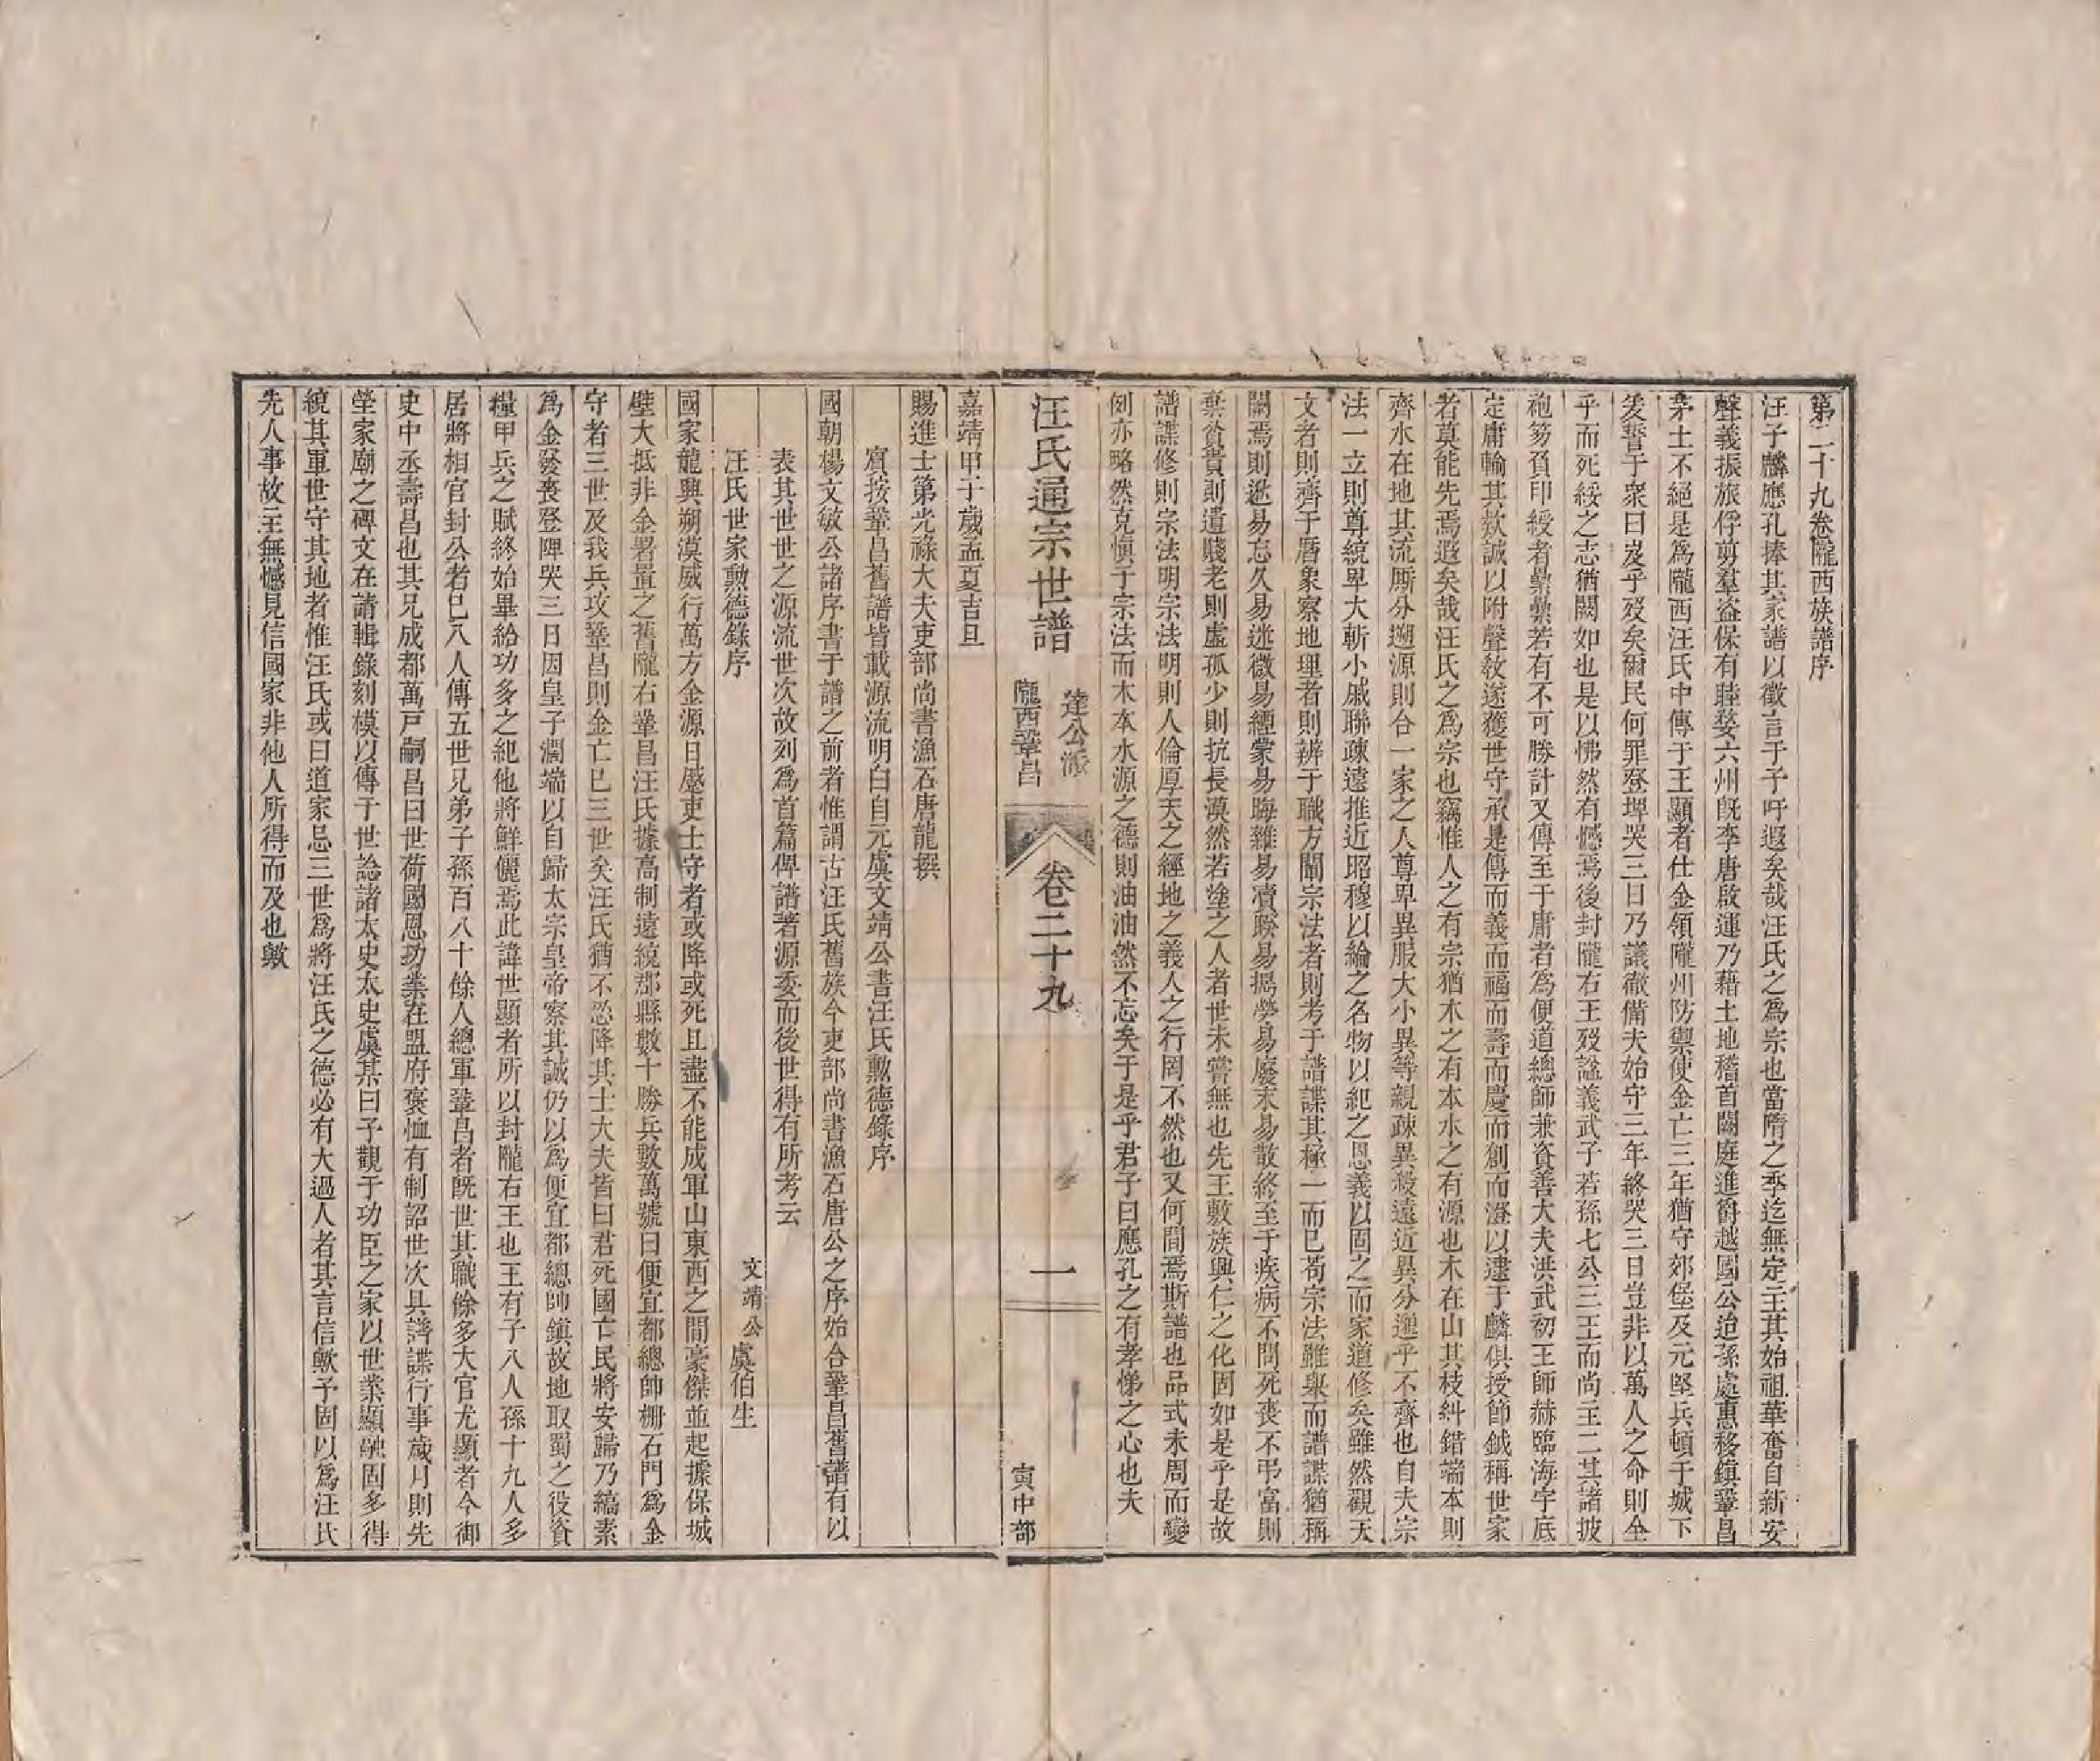 第二十九卷隴西族譜序
汪子麟應孔捧其家譜以徵言于予吁遐矣哉汪氏之爲宗也當隋之季迄無定主其始祖華奮自新安
聲義振旅俘剪羣盗保有睦婺六州旣李唐啟運乃藉土地稽首闕庭進爵越國公迨孫處惠移鎮鞏昌
茅土不絕是爲隴西汪氏中傳于王顯者仕金領隴州防禦使金亡三年猶守郊堡及元堅兵頓于城下
爰誓于衆曰岌乎殆矣爾民何罪登埤哭三日乃議徹備夫始守三年終哭三日豈非以萬人之命則全
乎而死綏之志猶闕如也是以怫然有憾焉後封隴右王歿諡義武子若孫七公三王而尚主二其諸披
袍笏負印綬者纍纍若有不可勝計又傳至于庸者爲便道總師兼資善大夫洪武初王師赫臨海宇底
定庸輸其欵誠以附聲敎遂獲世守承是傳而義而福而壽而慶而創而澄以逮于麟俱授節鉞稱世家
者莫能先焉遐矣哉汪氏之爲宗也竊惟人之有宗猶木之有本水之有源也木在山其枝糾錯端本則
齊水在地其流厮分遡源則合一家之人尊卑異服大小異等親疎異殺遠近異分邈乎不齊也自夫宗
法一立則尊統卑大斬小戚聯疎遠推近昭穆以綸之名物以紀之恩義以固之而家道修矣雖然觀天
文者則齊于曆象察地理者則辨于職方闡宗法者則考于譜諜其極一而已苟宗法雖具而譜諜猶稱
闕焉則逖易忘久易迷微易縺蒙易晦雜易凟睽易搗勞易廢末易散終至于疾病不問死喪不弔富則
棄貧貴則遺賤老則虛孤少則抗長漠然若塗之人者世未嘗無也先王敦族興仁之化固如是乎是故
譜諜修則宗法明宗法明則人倫厚天之經地之義人之行罔不然也又何間焉斯譜也品式未周而變
例亦略然克愼于宗法而木本水源之德則油油然不忘矣于是乎君子曰應孔之有孝悌之心也夫
汪氏通宗世譜
達公派
隴西鞏昌
卷二十九
一
寅中部
嘉靖甲子歲孟夏吉旦
賜進士第光祿大夫吏部尚書漁石唐龍撰
賔按鞏昌舊譜皆載源流明白自元虞文靖公書汪氏勲德錄序
國朝楊文敏公諸序書于譜之前者惟謂古汪氏舊族今吏部尚書漁石唐公之序始合鞏昌舊譜有以
表其世世之源流世次故列爲首篇俾譜著源委而後世得有所考云
汪氏世家勲德錄序
文靖公虞伯生
國家龍興朔漠威行萬方金源日蹙吏士守者或降或死且盡不能成軍山東西之間豪傑並起據保城
壁大抵非金署置之舊隴右鞏昌汪氏據高制遠統郡縣數十勝兵數萬號曰便宜都總帥柵石門爲金
守者三世及我兵攻鞏昌則金亡已三世矣汪氏猶不恐降其士大夫皆曰君死國亡民將安歸乃縞素
爲金發喪登陴哭三日因皇子濶端以自歸太宗皇帝察其誠仍以爲便宜都總帥鎮故地取蜀之役資
糧甲兵之賦終始畢給功多之紀他將鮮儷焉此諱世顯者所以封隴右王也王有子八人孫十九人多
居將相官封公者已八人傳五世兄弟子孫百八十餘人總軍鞏昌者旣世其職餘多大官尤顯者今御
史中丞壽昌也其兄成都萬戸嗣昌曰世荷國恩功業在盟府褒恤有制詔世次具譜諜行事歲月則先
塋家廟之碑文在請輯錄刻模以傳于世諗諸太史太史虞某曰予觀于功臣之家以世業顯融固多得
統其軍世守其地者惟汪氏或曰道家忌三世爲將汪氏之德必有大過人者其言信歟予固以爲汪氏
先人事故主無憾見信國家非他人所得而及也歟